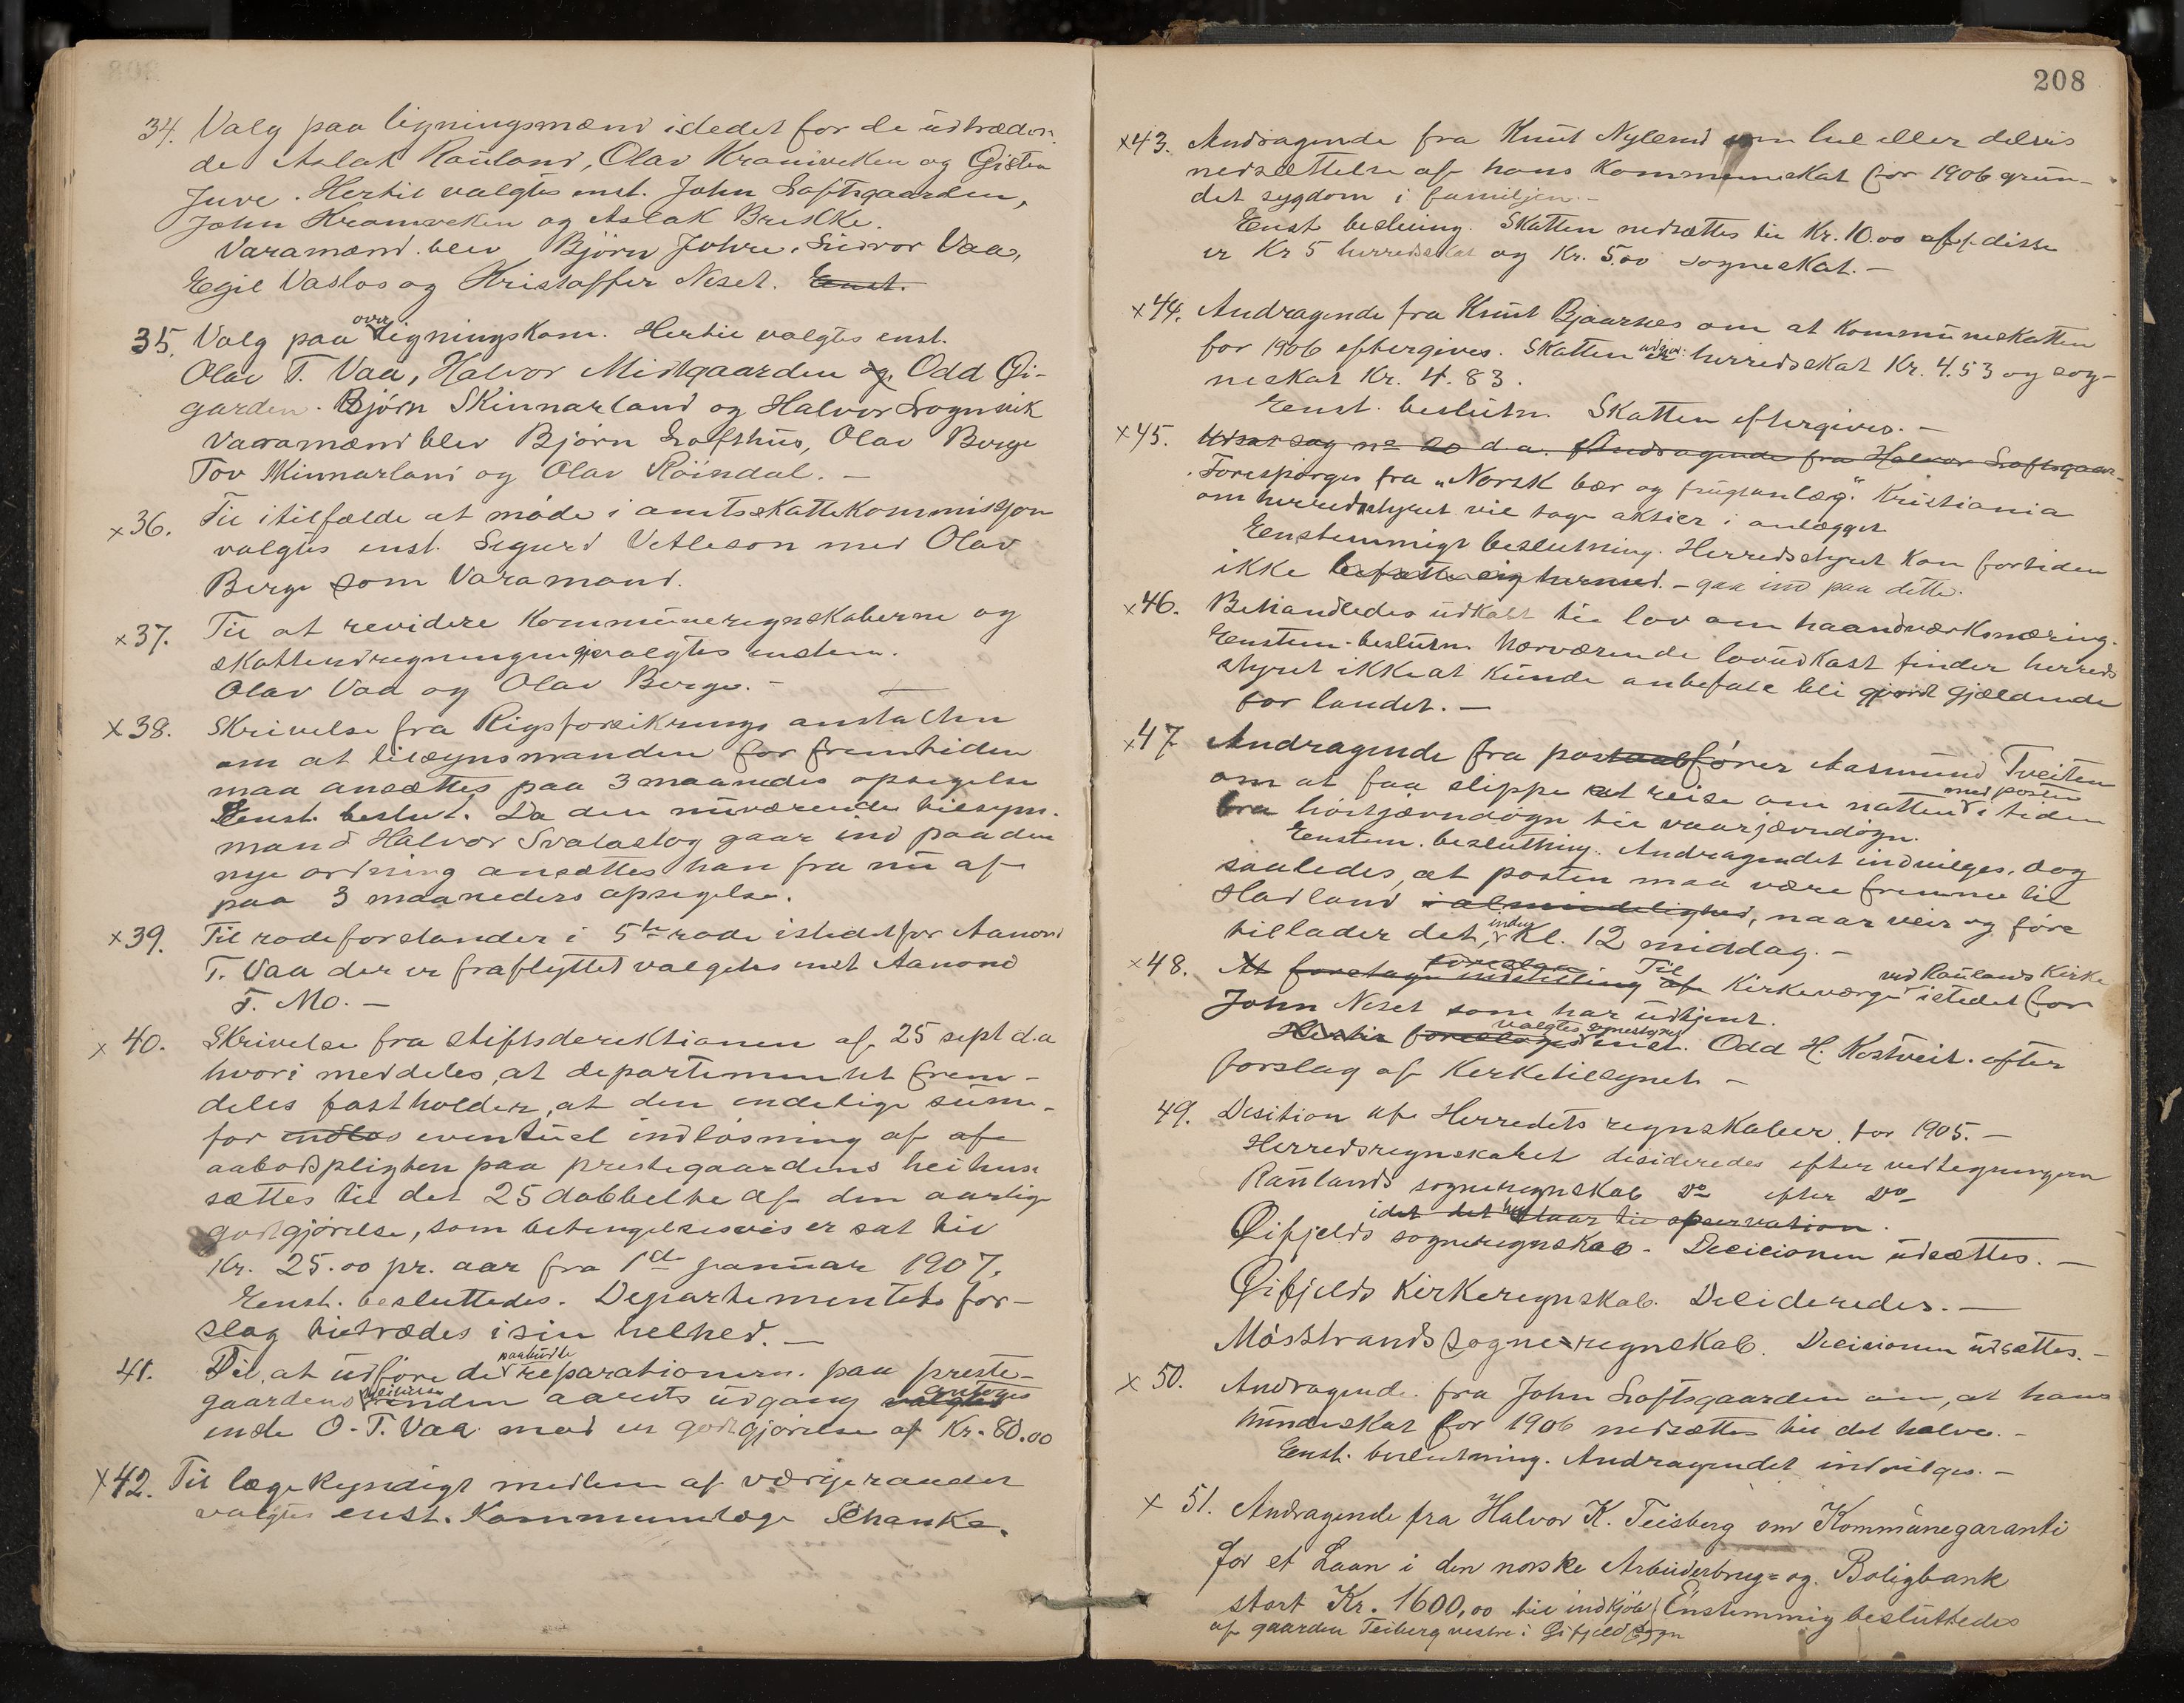 34. Valg paa ligningsmænd istedet for de udtræden-
de Aslak Rauland, Olav Kramviken og Gisten
Juve. Hertil valgtes enst. John Loftsgaarden,
John Kromviken og Aslak Brekke.
Varamænd blev Björn Johre, Gudvor Vaa,
Egil Vaslos og Kristoffer Neset. Enst.
35. Valg paa overligningskom. Hertil valgtes enst.
Olav T. Vaa, Halvor Midtgaarden og Odd Øi-
garden. Bjørn Skinnarland og Halvor Lognvik
Varamænd blev Bjørn Lofthus, Olav Berge
Tov Skinnarland og Olav Röindal. —
x36. Til itilfælde at møde i amtsskattekommissjon
valgtes enst. Sigurd Vetleson med Olav
Berge som Varamand.
x37. Til at revidere Kommuneregnskaberne og
skatteudregningen valgtes endem.
Olav Vaa og Olav Berge. —
x38. Skrivelse fra Rigsforsikrings anstalten
om at tilsynsmanden for fremtiden
maa ansættes paa 3 maaneders opsigelse
Enst. beslut. Da den nuværende tilsyns-
mand Halvor Svalastog gaar ind paa den
nye ordning ansættes han fra nu af
paa 3 maaneders opsigelse.
x39. Til rodeforstander i 5te rode istedet for Aanond
T. Vaa der er fraflyttet valgtes enst Aanond
T. Mo. —
x40. Skrivelse fra stiftsdirektionen af 25 sept d.a
hvori meddeles, at departementet frem-
deles fastholder, at den endelige sum-
for indløs eventuel indløsning af af
aabodspligten paa prestegaardens heihuse
sættes til det 25 dobbelte af den aarlige
godtgjørelse, som betingelsesvis er sat til
Kr. 25.00 pr. aar fra 1ste januar 1907.
Enst. besluttedes. Departementets for-
slag tiltrædes i sin helhed. —
41. Til, at udføre de paabudte reparationern. paa preste-
gaardens heihuse inden aarets udgang valgtes antoges
ende O. T. Vaa mod en godtgjørelse af Kr. 80.00
x42. Til lægekyndigt medlem af værgeraadet
valgtes enst. Kommunelæge Schanke.
208
x43. Andragende fra Knut Nylend om hel eller delvis
nedsættelse af hans Kommuneskat for 1906 grun-
det sygdom i familjen. —
Enst beslutning. Skatten nedsættes til Kr. 10.00 af disse
er Kr 5 herredskat og Kr. 5.00 sogneskat. —
x44. Andragende fra Knut Bjaarnes om at Kommuneskatten
for 1906 eftergives. Skatten udgjør er herredsskat Kr. 4.53 og sog-
neskat Kr. 4.83.
Enst. beslutn. Skatten eftergives. —
x45. Udsat sag no 20 d.a. Andragende fra Halvor Loftsgaar-
Forespørges fra „Norsk bær og frugtanlæg." Kristiania
om herredsstyret vil tage aktier i anlægget
Enstemmigt beslutning. Herredsstyret kan fortiden
ikke befatte sig hermed. — gaa ind paa dette.
x46. Behandledes udkast til lov om haandværksnæring.
Enstem. beslutn. Nærværende lovudkast finder herreds
styret ikke at kunde anbefale bli gjord gjældende
for landet. —
x47 Andragende fra postaabfører Aasmund Tveiten
om at faa slippe at reise om natten med posten i tiden
fra høstjævndøgn til vaarjævndøgn.
Enstem. beslutning. Andragendet indvilges, dog
saaledes, at posten maa være fremme til
Hadland i almindelighed, naar veir og føre
tillader det, inden Kl. 12 middag. —
x48. At foretage indstilling foreslaa af Til Kirkeværge ved Raulands Kirke istedet for
John Neset som har udtjent.
Hertil foresloges valgtes enst. Odd H. Kostveit. efter
forslag af Kerketilsynet —
49. Desition af Herredets regnskaber for 1905. —
Herredsregnskabet desideredes efter vedtegningern
Raulands sogneregnskab Do efter Do
idet det staar til opservation.
Øifjelds sogneregnskab. Decicionen udsættes. —
Øifjelds Kirkeregnskab. Delideredes. —
Mösstrands sogneregnskab. Decicionen udsættes. —
x50. Andragende fra John Loftsgaarden om, at hans
muneskat for 1906 nedsættes til det halve. —
Enst. beslutning. Andragendet indvilges. —
x51. Andragende fra Halvor K. Teisberg om Kommunegaranti
for et Laan i den norske Arbeiderbrug= og Boligbank
stort Kr. 1600,00 til indkjøb Enstemmig besluttedes
af gaarden Teiberg vestre i Øifjeld sogn